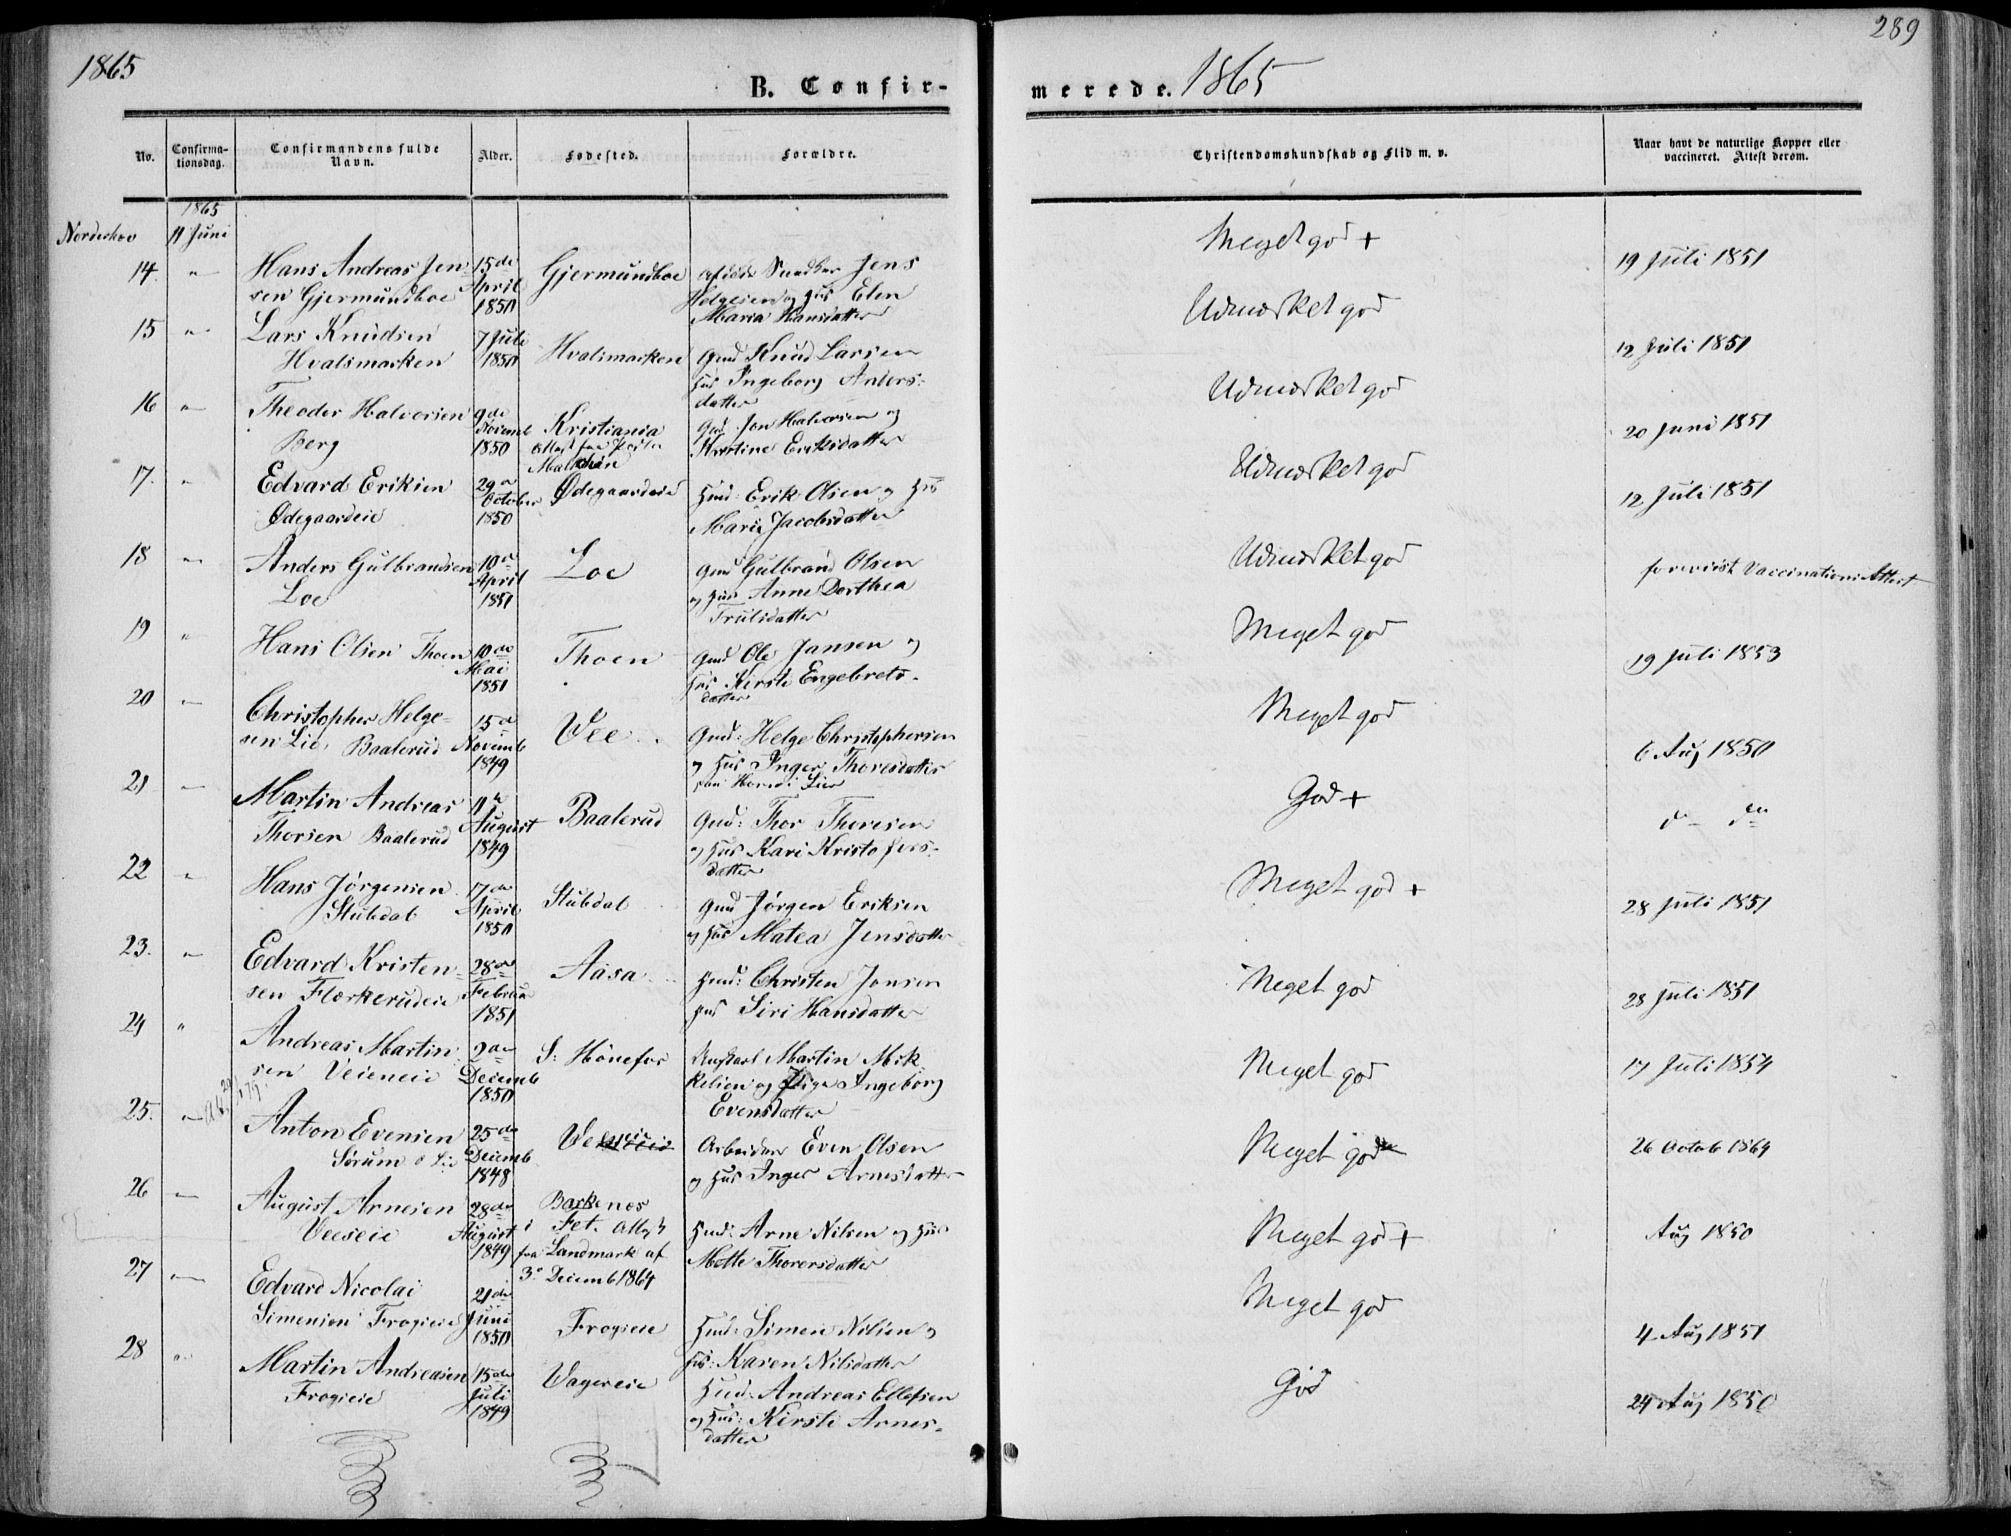 1865
B. Confir-
No.
Confirma-
tionsdag.
Confirmandens fulde
Navn.
Alder.
Fødested.
Forældre.
1865
Norderhov 11 Juni
14. " Hans Andreas Jen- 15de Gjermundboe Afdøde Jens
sen Gjermundboe April Helgesen og Hus Elen
1850 Maria Hansdatter
15 " Lars Knudsen 7 Juli
Hvalsmarken 1850 Hvalsmarken Gmd Knud Larsen
Hus Ingeborg Anders-
datter
16 " Theodor Halvorsen 9de Kristiania Gmd Jon Halvorsen og
Berg Novemb
1850 Attest fra Kirstine Eriksdatter
17. " Edvard Eriksen 29de Ødegaardeie Husmd: Erik Olsen og Hus
Ødegaardeie October
1850 Marie Jacobsdatter
18 " Anders Gulbrandsen 10de Loe Gmd Gulbrand Olsen
Loe April og Hus Anne Dorthea
1851 Trulsdatter
19 " Hans Olsen Thoen 10de Thoen Gmd Ole Jansen og
Mai Hus Kirsti Engebrets-
1851 datter
20 " Christopher Helge- 15de Vee Gmd: Helge Christophersen
sen Lie, Baalerud Novemb og Hus Inger Thoresdatter
1849
21 " Martin Andreas 11te Baalerud Gmd: Thor Thoresen
Thorsen Baalerud August og Hus Kari Kristofers-
1849 datter
22 " Hans Jørgensen 17de Stubdal Gmd Jørgen Eriksen
Stubdal April og Hus Matea Jensdatter
1850
23. " Edvard Kristen- 28de Aasa Husmd: Christen Jonsen
sen Flærkerudeie Februar Hus Siri Hansdatter
1851
24 " Andreas Martin- 2den S: Hønefos Ungkarl Martin Mik-
sen Veieneie Decemb kelsen og Pige Ingeborg
1850 Evensdatter
25. " Anton Evensen 25de Arbeider Even Olsen
Sørum Decemb og Hus Inger Arnesdatter
1848
26 " August Arnesen 28de Barkenæs
Veeseie August i Fet. Attest Husmd: Arne Nilsen og Hus
1849 fra Landmark af Mette Thorersdatter
3de Decemb 1864
27 " Edvard Nicolai 21de
Simensen Frogseie Juni Frogseie Husmd: Simen Nilsen og
1850 Hus: Karen Nilsdatter
28 " Martin Andreasen 15de Vagereie Husmd: Andreas Ellefsen
Frogseie Juli og Hus: Kirsti Arnes-
1849 datter
289
merede. 1865
Christendomskundskab og Flid m. v.
Naar havt de naturlige Kopper eller
vaccineret. Attest derom.
Meget god +
19 Juli 1851
Udmærket god
12 Juli 1851
Udmærket god
20 Juni 1851
Udmærket god
12 Juli 1851
Udmærket god
forevist Vaccinations Attest
Meget god
19 Juli 1853
Meget god
6 Aug 1850
God +
Meget god +
28 Juli 1851
Meget god
28 Juli 1851
Meget god
17 Juli 1854
Meget god
26 Octob 1864
Meget god +
Aug 1850
Meget god
4 Aug 1851
God
24 Aug 1850